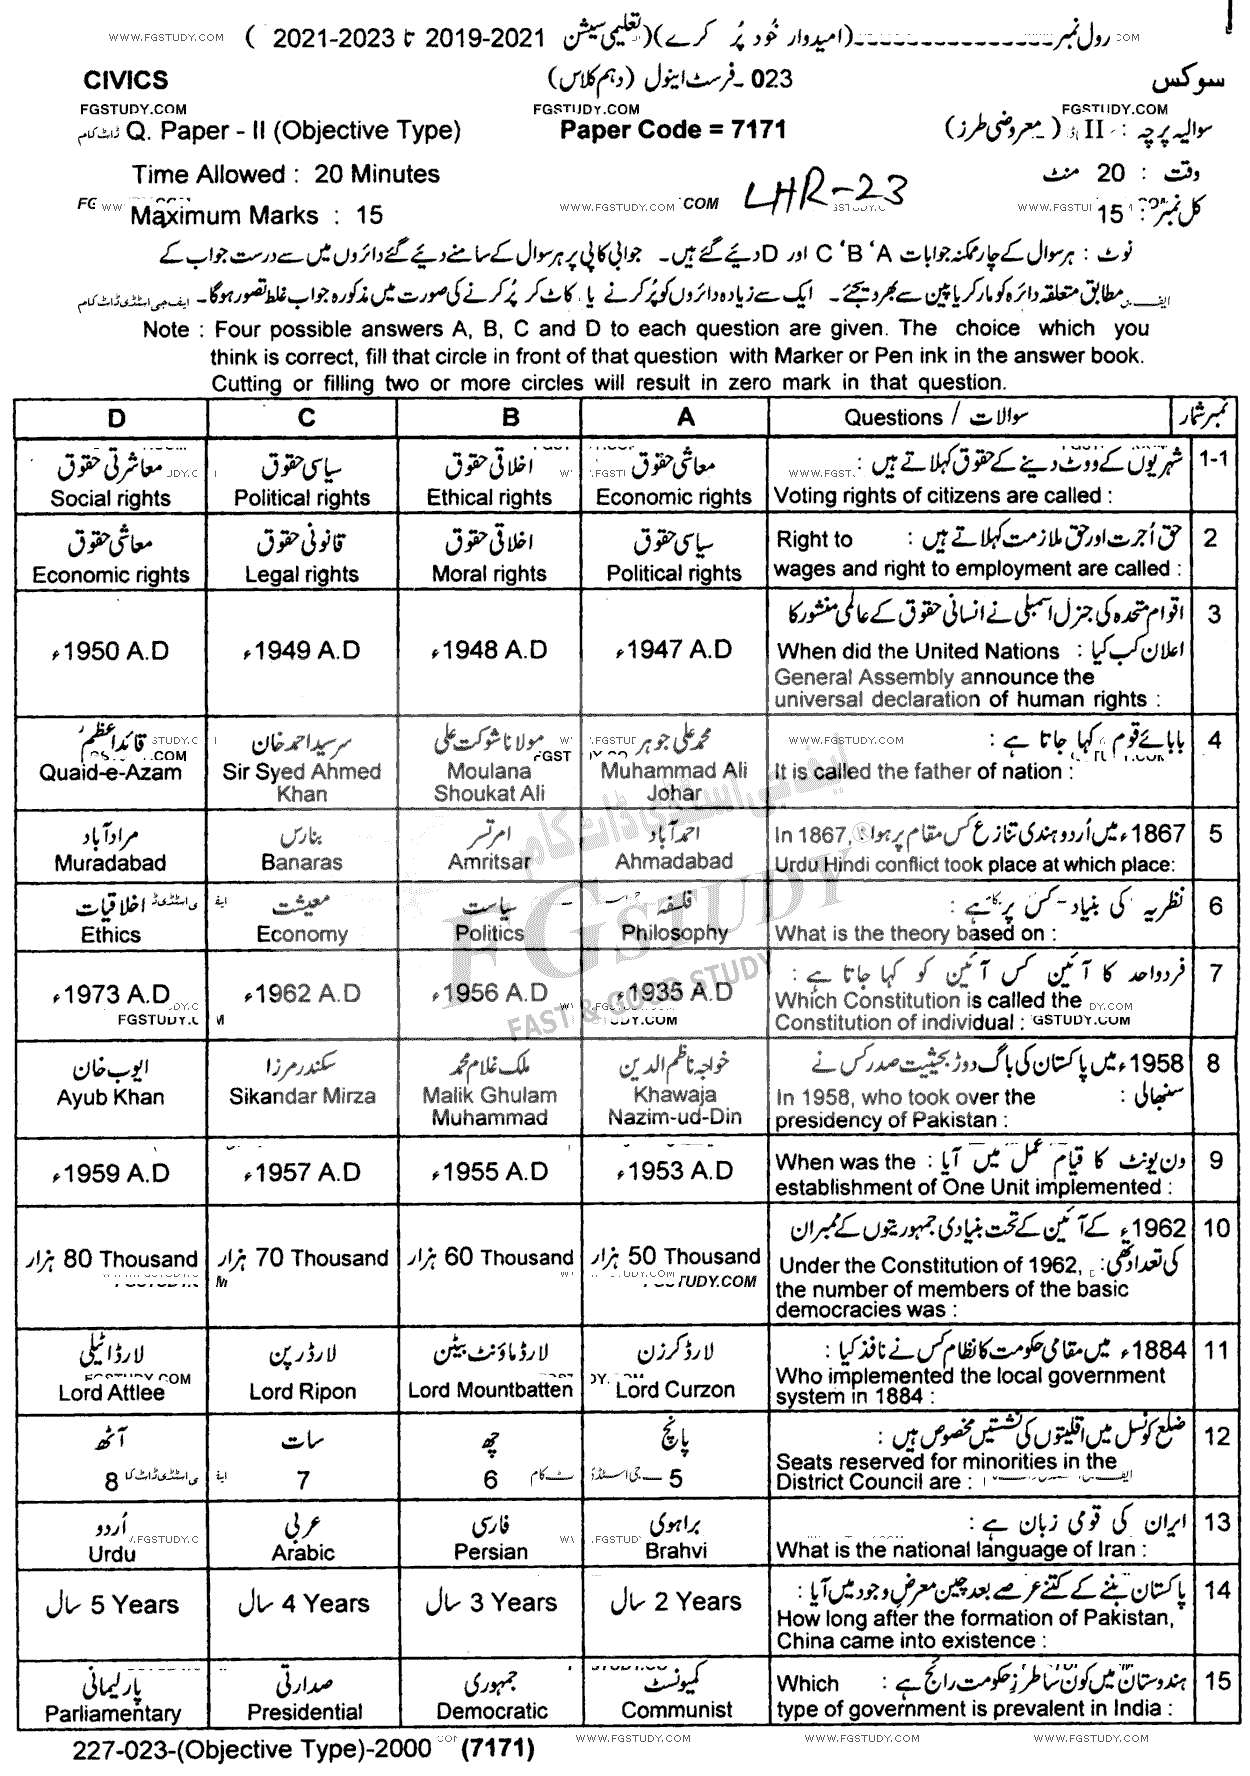 رول نمبر ---------------(امیدوار خُود پُر کرے)(تعلیمی سیشن 2021-2019 تا 2023-2021 )
WWW.FGSTUDY.COM
CIVICS 023-فرسٹ اینول (دہم کلاس) سوکس
FGSTUDY.COM FGSTUDY.COM FGSTUDY.COM
Q. Paper - II (Objective Type) Paper Code = 7171 سوالیہ پرچہ : II (معروضی طرز)
Time Allowed : 20 Minutes وقت : 20 منٹ
LHR-23
Maximum Marks : 15 کل نمبر : 15
نوٹ : ہر سوال کے چار ممکنہ جوابات A ' B ' C اور D دیئے گئے ہیں۔ جوابی کاپی پر ہر سوال کے سامنے دیئے گئے دائروں میں سے درست جواب کے
مطابق متعلقہ دائرہ کو مارکر یا پین سے بھر دیجئے۔ ایک سے زیادہ دائروں کو پُر کرنے یا کاٹ کر پُر کرنے کی صورت میں مذکورہ جواب غلط تصور ہوگا۔
Note : Four possible answers A, B, C and D to each question are given. The choice which you
think is correct, fill that circle in front of that question with Marker or Pen ink in the answer book.
Cutting or filling two or more circles will result in zero mark in that question.
D C B A Questions / سوالات نمبر شمار
معاشرتی حقوق سیاسی حقوق اخلاقی حقوق معاشی حقوق شہریوں کے ووٹ دینے کے حقوق کہلاتے ہیں : 1-1
Social rights Political rights Ethical rights Economic rights Voting rights of citizens are called :
معاشی حقوق قانونی حقوق اخلاقی حقوق سیاسی حقوق Right to حق اُجرت اور حق ملازمت کہلاتے ہیں : 2
Economic rights Legal rights Moral rights Political rights wages and right to employment are called :
اقوام متحدہ کی جنرل اسمبلی نے انسانی حقوق کے عالمی منشور کا 3
1950 A.D ء 1949 A.D ء 1948 A.D ء 1947 A.D ء When did the United Nations اعلان کب کیا :
General Assembly announce the
universal declaration of human rights :
قائداعظم سرسید احمد خان مولانا شوکت علی محمد علی جوہر بابائے قوم کہا جاتا ہے : 4
Quaid-e-Azam Sir Syed Ahmed Moulana Muhammad Ali It is called the father of nation :
Khan Shoukat Ali Johar
مرادآباد بنارس امرتسر احمدآباد In 1867, 1867ء میں اُردو ہندی تنازع کس مقام پر ہوا 5
Muradabad Banaras Amritsar Ahmadabad Urdu Hindi conflict took place at which place:
اخلاقیات معیشت سیاست فلسفہ نظریہ کی بنیاد کس پر ہے : 6
Ethics Economy Politics Philosophy What is the theory based on :
فردواحد کا آئین کس آئین کو کہا جاتا ہے : 7
1973 A.D ء 1962 A.D ء 1956 A.D ء 1935 A.D ء Which Constitution is called the
FGSTUDY.COM Constitution of individual :
ایوب خان سکندر مرزا ملک غلام محمد خواجہ ناظم الدین 1958ء میں پاکستان کی باگ دوڑ بحیثیت صدر کس نے 8
Ayub Khan Sikandar Mirza Malik Ghulam Khawaja In 1958, who took over the سنبھالی :
Muhammad Nazim-ud-Din presidency of Pakistan :
1959 A.D ء 1957 A.D ء 1955 A.D ء 1953 A.D ء When was the ون یونٹ کا قیام عمل میں آیا : 9
establishment of One Unit implemented :
1962ء کے آئین کے تحت بنیادی جمہوریتوں کے ممبران 10
80 Thousand ہزار 70 Thousand ہزار 60 Thousand ہزار 50 Thousand ہزار Under the Constitution of 1962, کی تعداد تھی :
the number of members of the basic
democracies was :
لارڈ اٹیلی لارڈ رپن لارڈ ماؤنٹ بیٹن لارڈ کرزن 1884ء میں مقامی حکومت کا نظام کس نے نافذ کیا : 11
Lord Attlee Lord Ripon Lord Mountbatten Lord Curzon Who implemented the local government
system in 1884 :
آٹھ سات چھ پانچ ضلع کونسل میں اقلیتوں کی نشستیں مخصوص ہیں : 12
8 7 6 5 Seats reserved for minorities in the
District Council are :
اُردو عربی فارسی براہوی ایران کی قومی زبان ہے : 13
Urdu Arabic Persian Brahvi What is the national language of Iran :
5 Years سال 4 Years سال 3 Years سال 2 Years سال پاکستان بننے کے کتنے عرصے بعد چین معرض وجود میں آیا : 14
How long after the formation of Pakistan,
China came into existence :
پارلیمانی صدارتی جمہوری کمیونسٹ Which ہندوستان میں کون سا طرز حکومت رائج ہے : 15
Parliamentary Presidential Democratic Communist type of government is prevalent in India :
227-023-(Objective Type)-2000 (7171) WWW.FGSTUDY.COM WWW.FGSTUDY.COM WWW.FGSTUDY.COM
FGSTUDY
FAST & GOOD STUDY